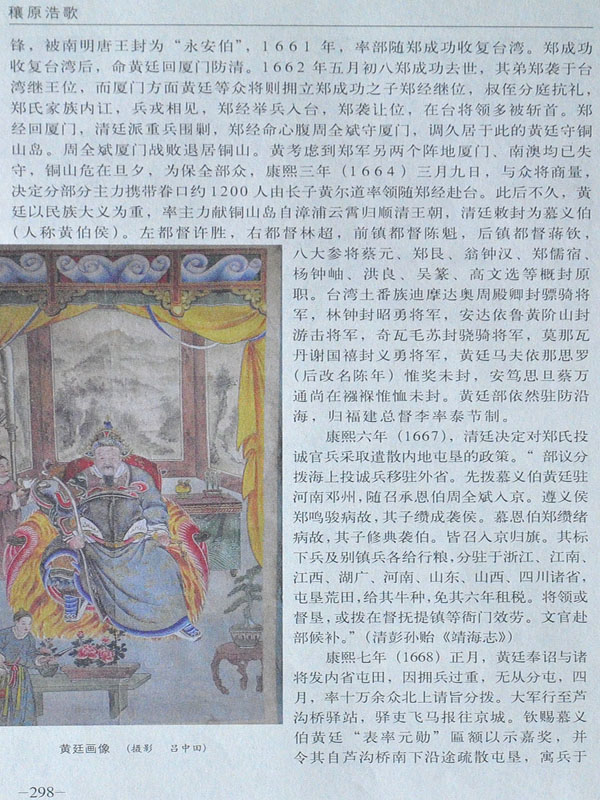 穰原浩歌
锋，被南明唐王封为“永安伯”，1661 年，率部随郑成功收复台湾。郑成功
收复台湾后，命黄廷回厦门防清。1662 年五月初八郑成功去世，其弟郑袭于台
湾继王位，而厦门方面黄廷等众将则拥立郑成功之子郑经继位，叔侄分庭抗礼，
郑氏家族内讧，兵戎相见，郑经举兵入台，郑袭让位，在台将领多被斩首。郑
经回厦门，清廷派重兵围剿，郑经命心腹周全斌守厦门，调久居于此的黄廷守铜
山岛。周全斌厦门战败退居铜山。黄考虑到郑军另两个阵地厦门、南澳均已失
守，铜山危在旦夕，为保全部众，康熙三年（1664）三月九日，与众将商量，
决定分部分主力携带眷口约 1200 人由长子黄尔道率领随郑经赴台。此后不久，黄
廷以民族大义为重，率主力献铜山岛自漳浦云霄归顺清王朝，清廷敕封为慕义伯
（人称黄伯侯）。左都督许胜，右都督林超，前镇都督陈魁，后镇都督蒋钦，
八大参将蔡元、郑艮、翁钟汉、郑儒宿、
杨钟岫、洪良、吴篆、高文选等概封原
职。台湾土番族迪摩达奥周殿卿封骠骑将
军，林钟封昭勇将军，安达依鲁黄阶山封
游击将军，奇瓦毛苏封骁骑将军，莫那瓦
丹谢国禧封义勇将军，黄廷马夫依那思罗
（后改名陈年）惟奖未封，安笃思旦蔡万
通尚在襁褓惟恤未封。黄廷部依然驻防沿
海，归福建总督李率泰节制。
康熙六年（1667），清廷决定对郑氏投
诚官兵采取遣散内地屯垦的政策。“ 部议分
拨海上投诚兵移驻外省。先拨慕义伯黄廷驻
河南邓州，随召承恩伯周全斌入京。遵义侯
郑鸣骏病故，其子缵成袭侯。慕恩伯郑缵绪
病故，其子修典袭伯。皆召入京归旗。其标
下兵及别镇兵各给行粮，分驻于浙江、江南、
江西、湖广、河南、山东、山西、四川诸省，
屯垦荒田，给其牛种，免其六年租税。将领或
督垦，或拨在督抚提镇等衙门效劳。文官赴
部候补。”（清彭孙贻《靖海志》）
康熙七年（1668）正月，黄廷奉诏与诸
将发内省屯田，因拥兵过重，无从分屯，四
月，率十万余众北上请旨分拨。大军行至芦
沟桥驿站，驿吏飞马报往京城。钦赐慕义
伯黄廷“表率元勋”匾额以示嘉奖，并
令其自芦沟桥南下沿途疏散屯垦，寓兵于
黄廷画像 （摄影 吕中田）
—298—